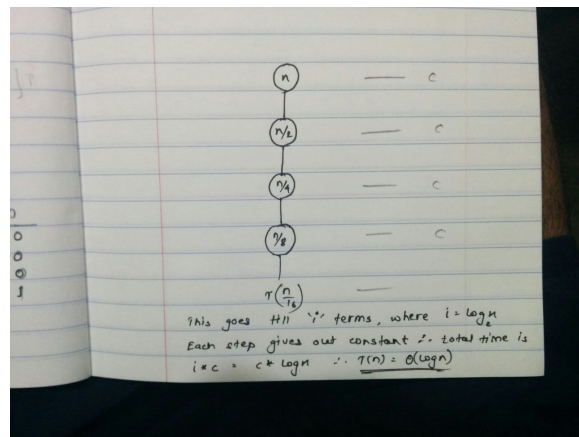 n — c
n/2 — c
n/4 — c
n/8 — c
T(n/16) —
This goes till "i" terms, where i = log₂n
Each step gives out constant ∴ total time is
i * c = c * logn ∴ T(n) = θ(logn)
0
0
0
0
1